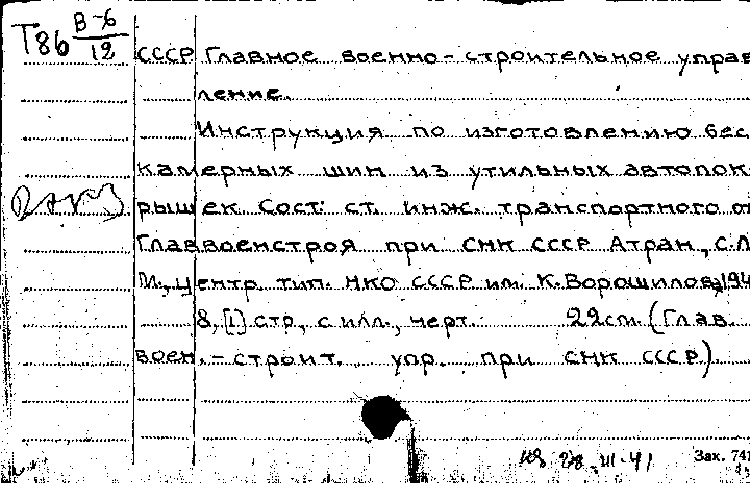 Т86 В-6/12
СССР Главное военно-строительное управ
ление.
Инструкция по изготовлению бес
камерных шин из утильных автопок
рышек. Сост: ст. инж. транспортного от
Главвоенстроя при СНК СССР Атран, С.Л
М., Центр. тип. НКО СССР им. К. Ворошилова, 194
8, [1] стр, с илл., черт. 22см. (Глав.
воен.-строит. упр. при СНК СССР).
28.III-41
Зак. 741